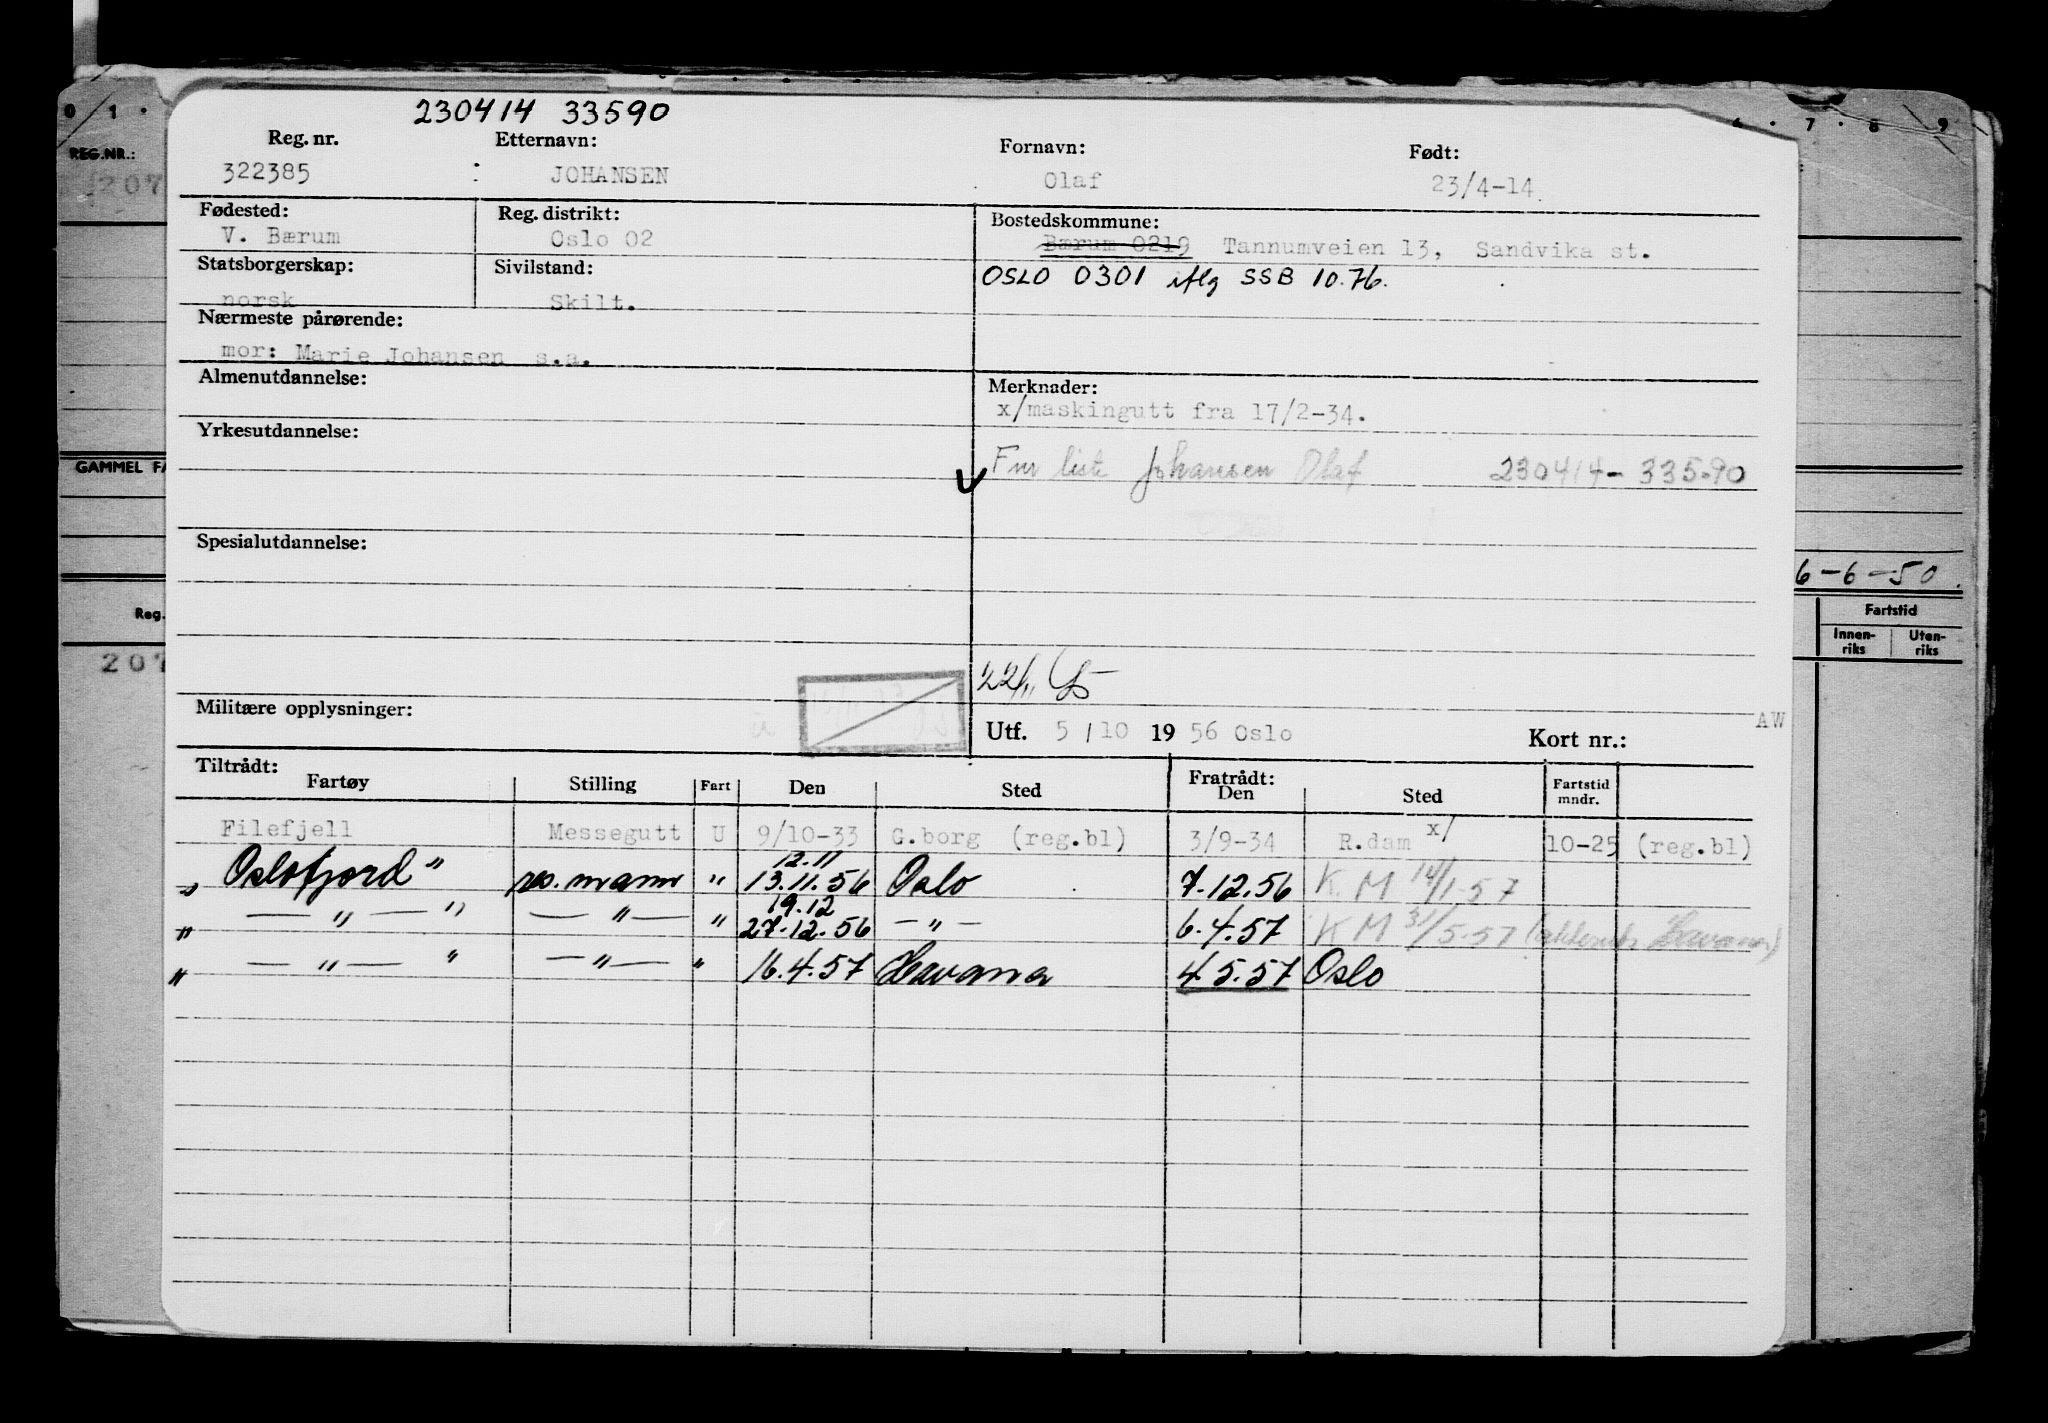 230414 33590
Reg. nr. Etternavn: Fornavn: Født:
322385 : JOHANSEN Olaf 23/4-14
Fødested: Reg. distrikt: Bostedskommune:
V. Bærum Oslo 02 Bærum 0219 Tannumveien 13, Sandvika st.
Statsborgerskap: Sivilstand: OSLO 0301 iflg SSB 10.76.
norsk Skilt.
Nærmeste pårørende:
mor: Marie Johansen s.a.
Almenutdannelse: Merknader:
x/maskingutt fra 17/2-34.
Yrkesutdannelse:
Fnr liste Johansen Olaf 230414-33590
Spesialutdannelse:
22/11
Militære opplysninger: AW
Utf. 5/10 1956 Oslo Kort nr.:
Tiltrådt: Fratrådt:
Fartøy Stilling Fart Den Sted Den Sted Fartstid mndr.
Filefjell Messegutt U 9/10-33 G.borg (reg.bl) 3/9-34 R.dam x/ 10-25 (reg.bl)
12.11
" Oslofjord " res. mann " 13.11.56 Oslo 7.12.56 K. M 14/1-57
19.12
" — " — " — " — " 27.12.56 — " — 6.4.57 K M 31/5-57 Havana)
" — " — " — " — " 16.4.57 Havana 4.5.57 Oslo
0 1 . 7 . 8 . 9
REG.NR.:
207
GAMMEL FA
6-6-50.
Reg. Fartstid
Innen-riks Uten-riks
207